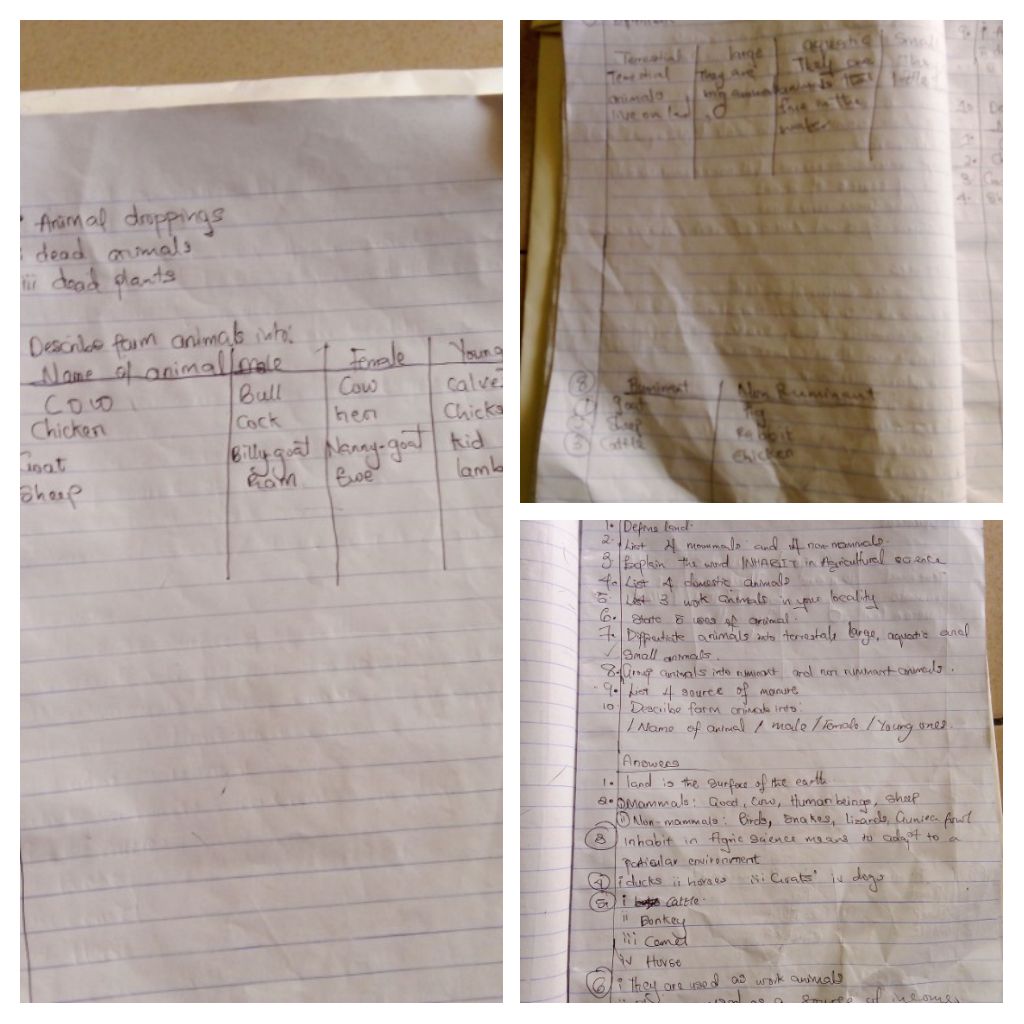 Animal droppings
dead animals
iii dead plants
Describe farm animals into:
Name of animal | male | Female | Young
Cow | Bull | Cow | calve
Chicken | Cock | hen | Chicks
Goat | Billy-goat | Nanny-goat | kid
Sheep | Ram | Ewe | lamb
Terrestial | large | aquatic | Small
Terrestial | They are | They are
animals | big animals
live on land | live in the
water
8 Ruminant | Non Ruminant
1 goat | Pig
2 Sheep | Rabbit
3 Cattle | Chicken
1. Define land.
2. List 4 mammals and 4 non-mammals.
3. Explain the word INHABIT in Agricultural science
4. List 4 domestic animals
5. List 3 work animals in your locality
6. State 8 uses of animal.
7. Diffentiate animals into terrestals large, aquatic and
Small animals.
8. Group animals into ruminant and non ruminant animals.
9. List 4 source of manure
10. Describe farm animals into:
/ Name of animal / male / Female / Young ones.
Answers
1. land is the Surface of the earth
2. i Mammals: Goat, Cow, Human beings, Sheep
ii Non-mammals: Birds, Snakes, Lizards, Guniea fowl
3 inhabit in Agric Science means to adapt to a
paticular environment
4 i ducks ii horses iii Goats iv dogs
5. i Cattle.
ii Donkey
iii Camel
iv Horse
6 i They are used as work animals
used as a source of income